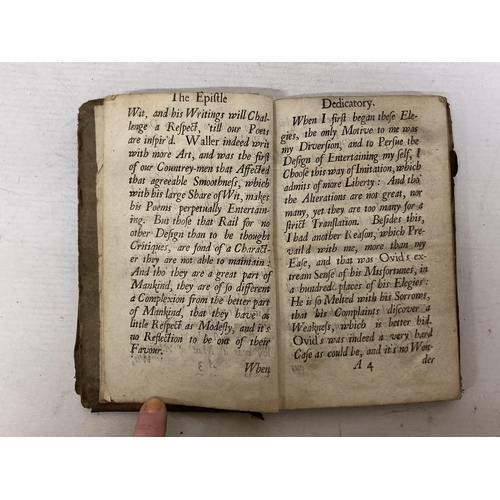 The Epistle
Wit, and his Writings will Chal-
lenge a Respect, 'till our Poets
are inspir'd. Waller indeed writ
with more Art, and was the first
of our Countrey-men that Affected
that agreeable Smoothness, which
with his large Share of Wit, makes
his Poems perpetually Entertain-
ing. But those that Rail for no
other Design than to be thought
Critiques, are fond of a Charact-
er they are not able to maintain:
And tho they are a great part of
Mankind, they are of so different
a Complexion from the better part
of Mankind, that they have as
little Respect as Modesty, and it's
no Reflection to be out of their
Favour.
When
Dedicatory.
When I first began these Ele-
gies, the only Motive to me was
my Diversion, and to Persue the
Design of Entertaining my self, I
Choose this way of Imitation, which
admits of more Liberty: And tho'
the Alterations are not great, nor
many, yet they are too many for a
strict Translation. Besides this,
I had another Reason, which Pre-
vail'd with me, more than my
Ease, and that was Ovid's ex-
tream Sense of his Misfortunes, in
a hundred places of his Elegies:
He is so Melted with his Sorrows,
that his Complaints discover a
Weakness, which is better hid.
Ovid's was indeed a very hard
Case as could be, and it's no Won-
A 4 der